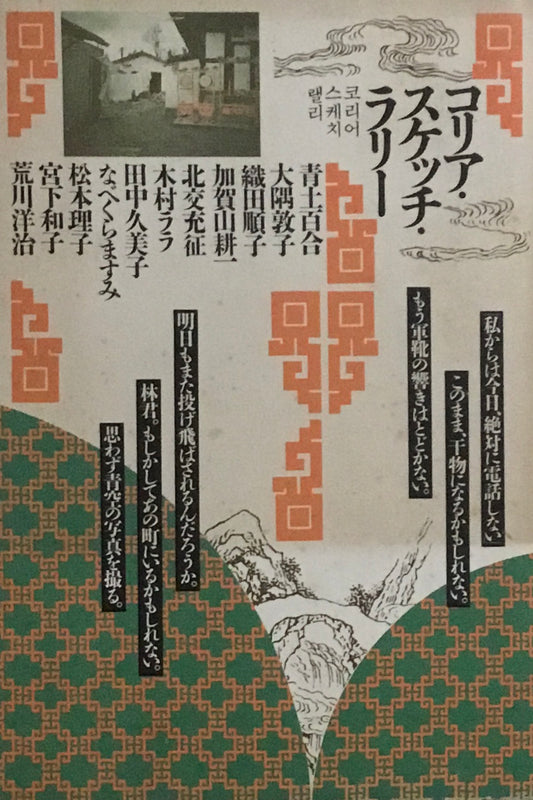 コリア・
スケッチ・
ラリー
코리어
스케치
랠리
青土百合
大隅敦子
織田順子
加賀山耕一
北交充征
木村ララ
田中久美子
なべくらますみ
松本理子
宮下和子
荒川洋治
私からは今日、絶対に電話しない
このまま、干物になるかもしれない。
もう軍靴の響きはとどかない。
明日もまた投げ飛ばされるんだろうか。
林君。もしかしてあの町にいるかもしれない。
思わず青空の写真を撮る。